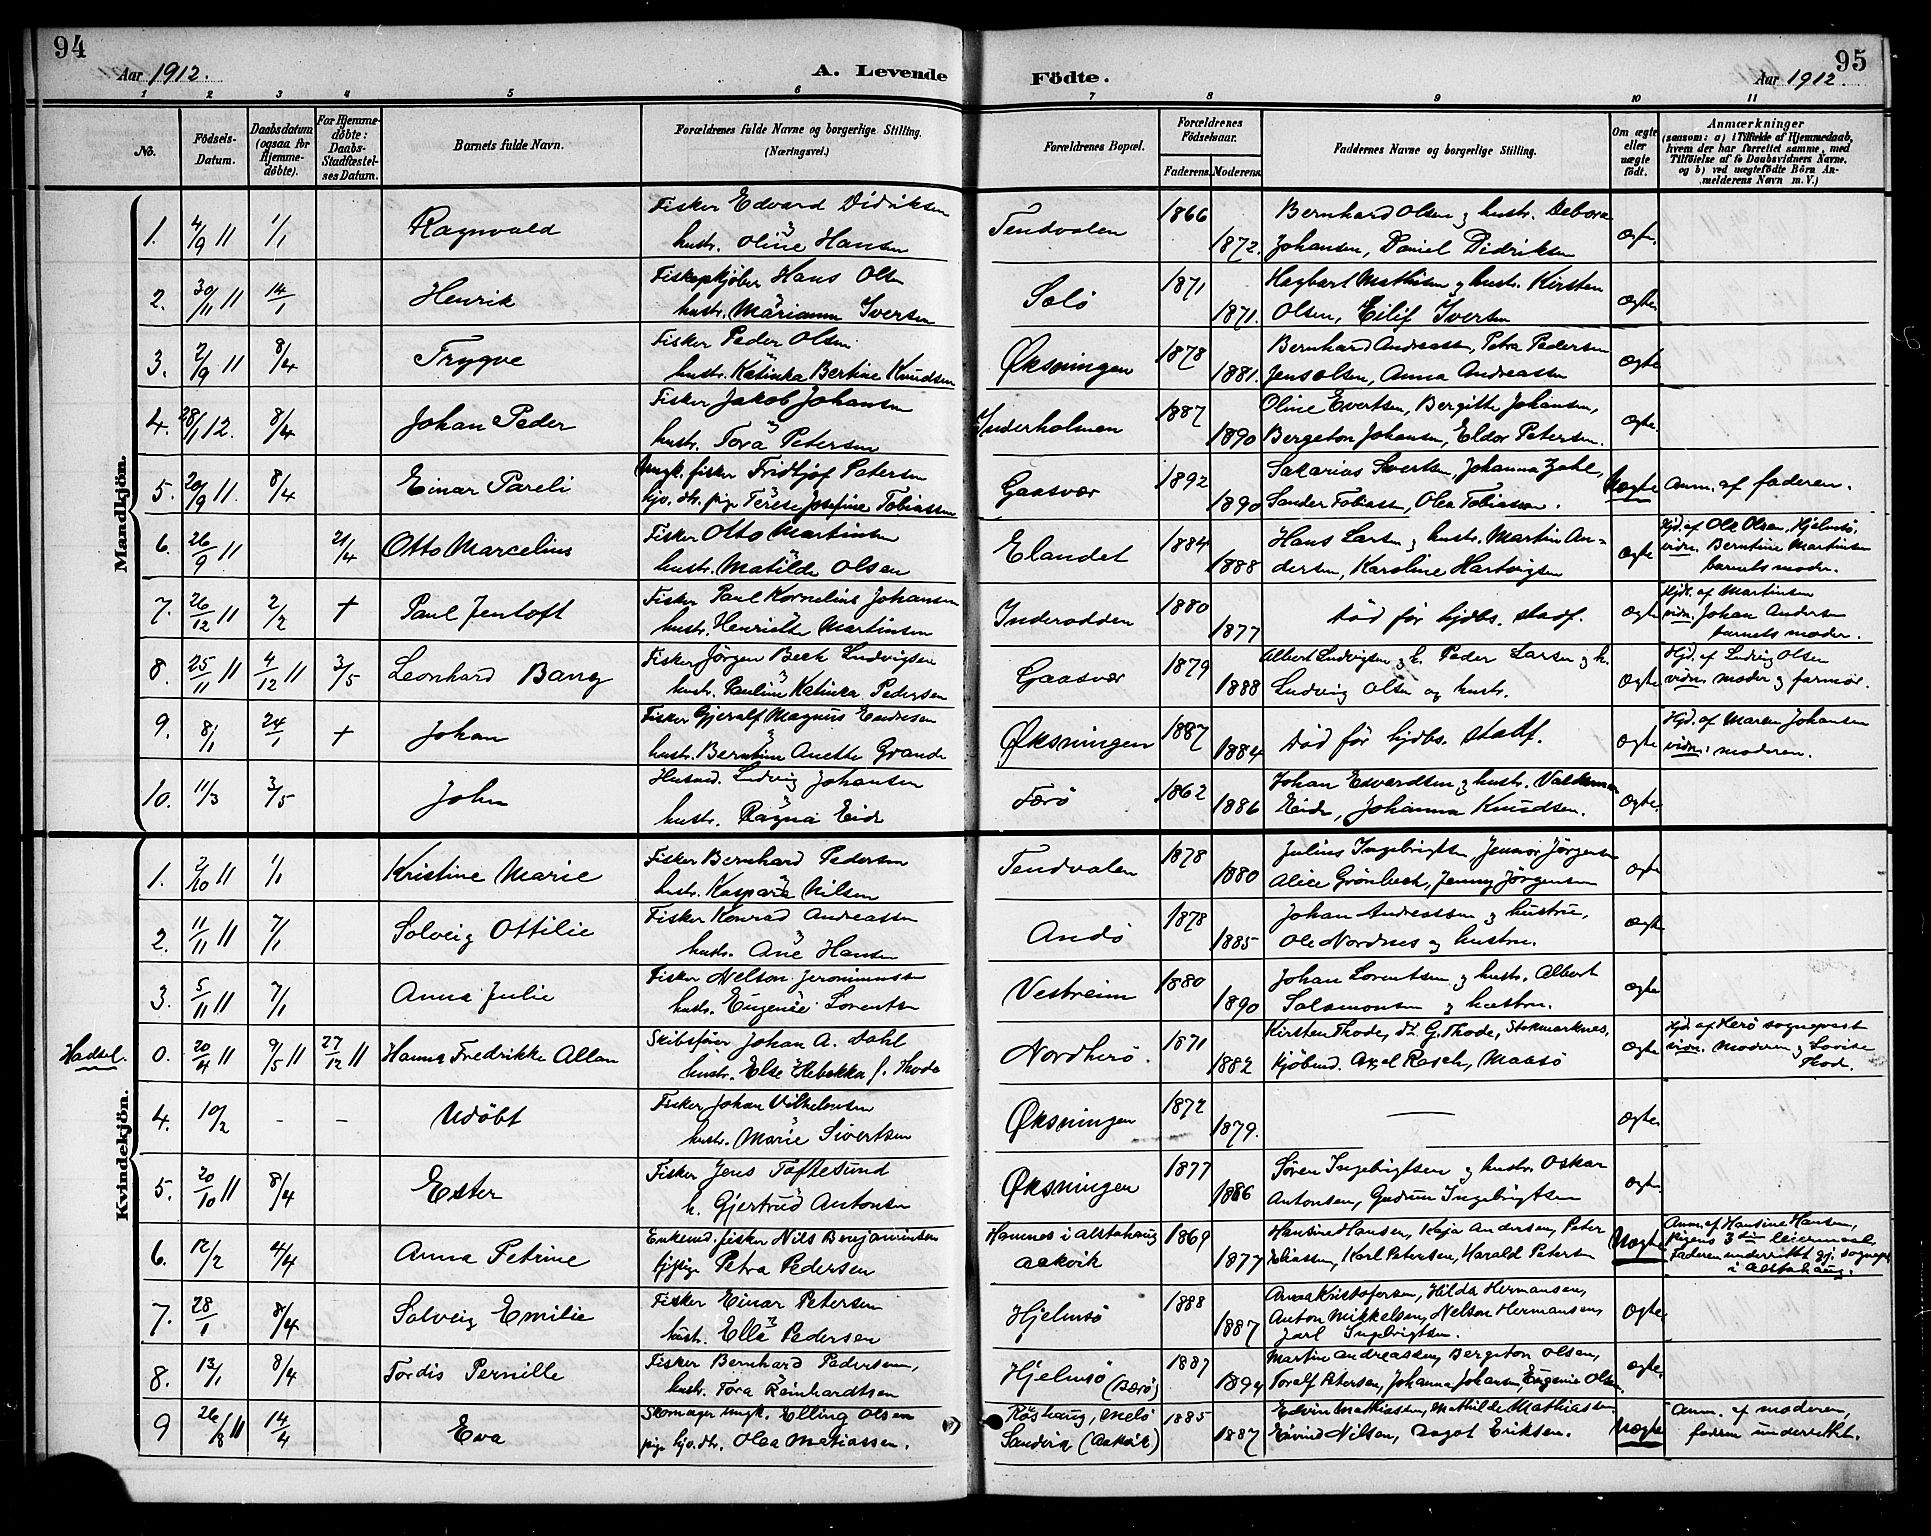 94
Aar 1912.
A. Levende
Födte.
Aar 1912.
95
1 2 3 4 5 6 7 8 9 10 11
No.
Födsels-Datum.
Daabsdatum (ogsaa for Hjemmedöbte).
For Hjemmedöbte: Daabs-Stadfæstelses Datum.
Barnets fulde Navn.
Forældrenes fulde Navne og borgerlige Stilling.
(Næringsvei.)
Forældrenes Bopæl.
Forældrenes Födselsaar.
Faderens. Moderens.
Faddernes Navne og borgerlige Stilling.
Om ægte eller uægte födt.
Anmærkninger
(saasom: a) i Tilfælde af Hjemmedaab, hvem der har forrettet samme, med Tilföielse af to Daabsvidners Navne, og b) ved uægtefödte Börn Anmelderens Navn m. V.)
Mandkjön.
1. 4/9 11 1/1 Ragnvald Fisker Edvard Didriksen Tendvalen 1866 Bernhard Olsen og hustr. Debora
hustr. Oline Hansen 1872. Johansen, Daniel Didriksen ægte.
2. 30/11 11 14/1 Henrik Fiskeopkjøber Hans Olsen Solö 1871 Hagbart Mathisen og hustr. Kirsten
hustr. Marianne Iversen 1871. Olsen, Eilif Iversen ægte.
3. 2/9 11 8/4 Trygve Fisker Peder Olsen Øksningen 1878 Bernhard Andreassen, Petra Pedersen
hustr. Katinka Bertine Knudsen 1881. Jens Olsen, Anna Andreassen ægte
4. 28/1 12. 8/4 Johan Peder Fisker Jakob Johansen Inderholmen 1887 Oline Evertsen, Bergitte Johansen,
hustr. Tora Petersen 1890 Bergeton Johansen, Eldor Petersen. ægte.
5. 20/9 11. 8/4 Einar Pareli Ungk. fisker Fridtjof Petersen Gaasvær 1892 Sakarias Sivertsen, Johanna Zahl, Uægte Anm. af faderen.
hjv. dtr. pige Terese Josefine Tobiassen 1890 Sander Tobiassen, Olea Tobiassen.
6. 26/9 11 21/4 Otto Marcelius Fisker Otto Martinsen Elandet 1884 Hans Larsen og hustr. Martin An- Hjd. af Ole Olsen, Hjelmsö,
hustr. Matilde Olsen 1888 dersen, Karoline Hartvigsen ægte vidn. Berntine Martinsen
barnets moder.
7. 26/12 11 2/2 + Paul Jentoft Fisker Paul Kornelius Johansen Inderodden 1880 død før hjdbs. stadf. ægte Hjd. af Martinsen
hustr. Henriette Martinsen 1877 vidn. Johan Andersen
barnets moder.
8. 25/11 11 4/12 11 3/5 Leonhard Bang Fisker Jörgen Beck Ludvigsen Gaasvær 1879 Albert Ludvigsen og h. Peder Larsen og h. Hjd. af Ludvig Olsen
hustr. Pauline Katinka Pedersen 1888 Ludvig Olsen og hustr. ægte vidn. moder og farmor.
9. 8/1 24/1 + Johan Fisker Gjeralf Magnus Endresen Øksningen 1887 Død før hjdbs. stadf. ægte Hjd. af Maren Johansen
hustr. Berntine Anette Grande 1884 vidn. moderen.
10. 11/3 3/5 John Husmd. Ludvig Johansen Færö 1862 Johan Edvardsen og hustr.
hustr. Ragna Eide 1886 Eide, Johanna Knudsen. ægte.
Kvindekjön.
1. 2/10 11 1/1 Kristine Marie Fisker Bernhard Pedersen Tendvalen 1878 Julius Ingebrigtsen, Jörgensen
hustr. Kaspara Nilsen 1880 Alice Grönbech, Jenny Jörgensen ægte
2. 11/11 11 7/1 Solveig Ottilie Fisker Konrad Andreassen Andö 1878 Johan Andreassen og hustru,
hustr. Ane Hansen 1885 Ole Nordnes og hustru. ægte
3. 5/11 11 7/1 Anna Julie Fisker Nelson Jeronimussen Vestreim 1880 Johan Lorentsen og hustr. Albert
hustr. Eugenie Lorentsen 1890 Salamonsen og hustru. ægte
Hadsel. 0. 20/4 11 9/5 11 27/12 11 Hanna Fredrikke Allan Skibsförer Johan A. Dahl Nordherö 1871 Kirsten Thode, G. Thode, Stokmarknes, Hjd. af Herö sogneprest
hustr. Else Rebekka f. Thode 1882 Kjöbmd. Axel Rasch, Maasö ægte vidn. Moderen og Lovise
Thode.
4. 10/2 - - Udöbt Fisker Johan Vilhelmsen Øksningen 1872 —
hustr. Marie Sivertsen 1879. ægte.
5. 20/10 11 8/4 Ester Fisker Jens Toftesund Øksningen 1877 Sören Ingebrigtsen og hustr. Oskar
h. Gjertrud Antonsen 1886 Antonsen, Gudrun Ingebrigtsen ægte.
6. 12/2 4/4 Anna Petrine Enkemd. fisker Nils Benjaminsen Hamnes i Alstahaug 1869 Hansine Hansen, Kaja Andersen, Peter Uægte Anm. af Hansine Hansen,
Petra Pedersen Aakvik 1877 Eliassen, Karl Petersen, Harald Petersen pigens 3die leiermaal.
Faderen underrettet gj. sognepr.
i Alstahaug.
7. 28/1 8/4 Solveig Emilie Fisker Einar Petersen Hjelmsö 1888 Anna Kristofersen, Hilda Hermansen,
hustr. Ella Pedersen 1887 Anton Mikkelsen, Nelson Hermansen, ægte
Jarl Ingebrigtsen.
8. 13/1 8/4 Tordis Pernille Fisker Bernhard Pedersen, Hjelmsö 1887 Martin Andreassen, Bergeton Olsen,
hustr. Tora Reinhardtsen (Bærö) 1894 Toralf Petersen, Johanna Johansen, Eugenie Olsen. ægte.
9 26/8 11 14/4 Eva Skomager ungk. Elling Olsen Röshaug, Melö 1885 Edvin Mathiassen, Mathilde Mathiassen Uægte Anm. af moderen,
pige hjv. dtr. Olea Matiassen. Sandvik (Aakvik) 1887 Eivind Nilsen, Dagot Eriksen. faderen underrettet.